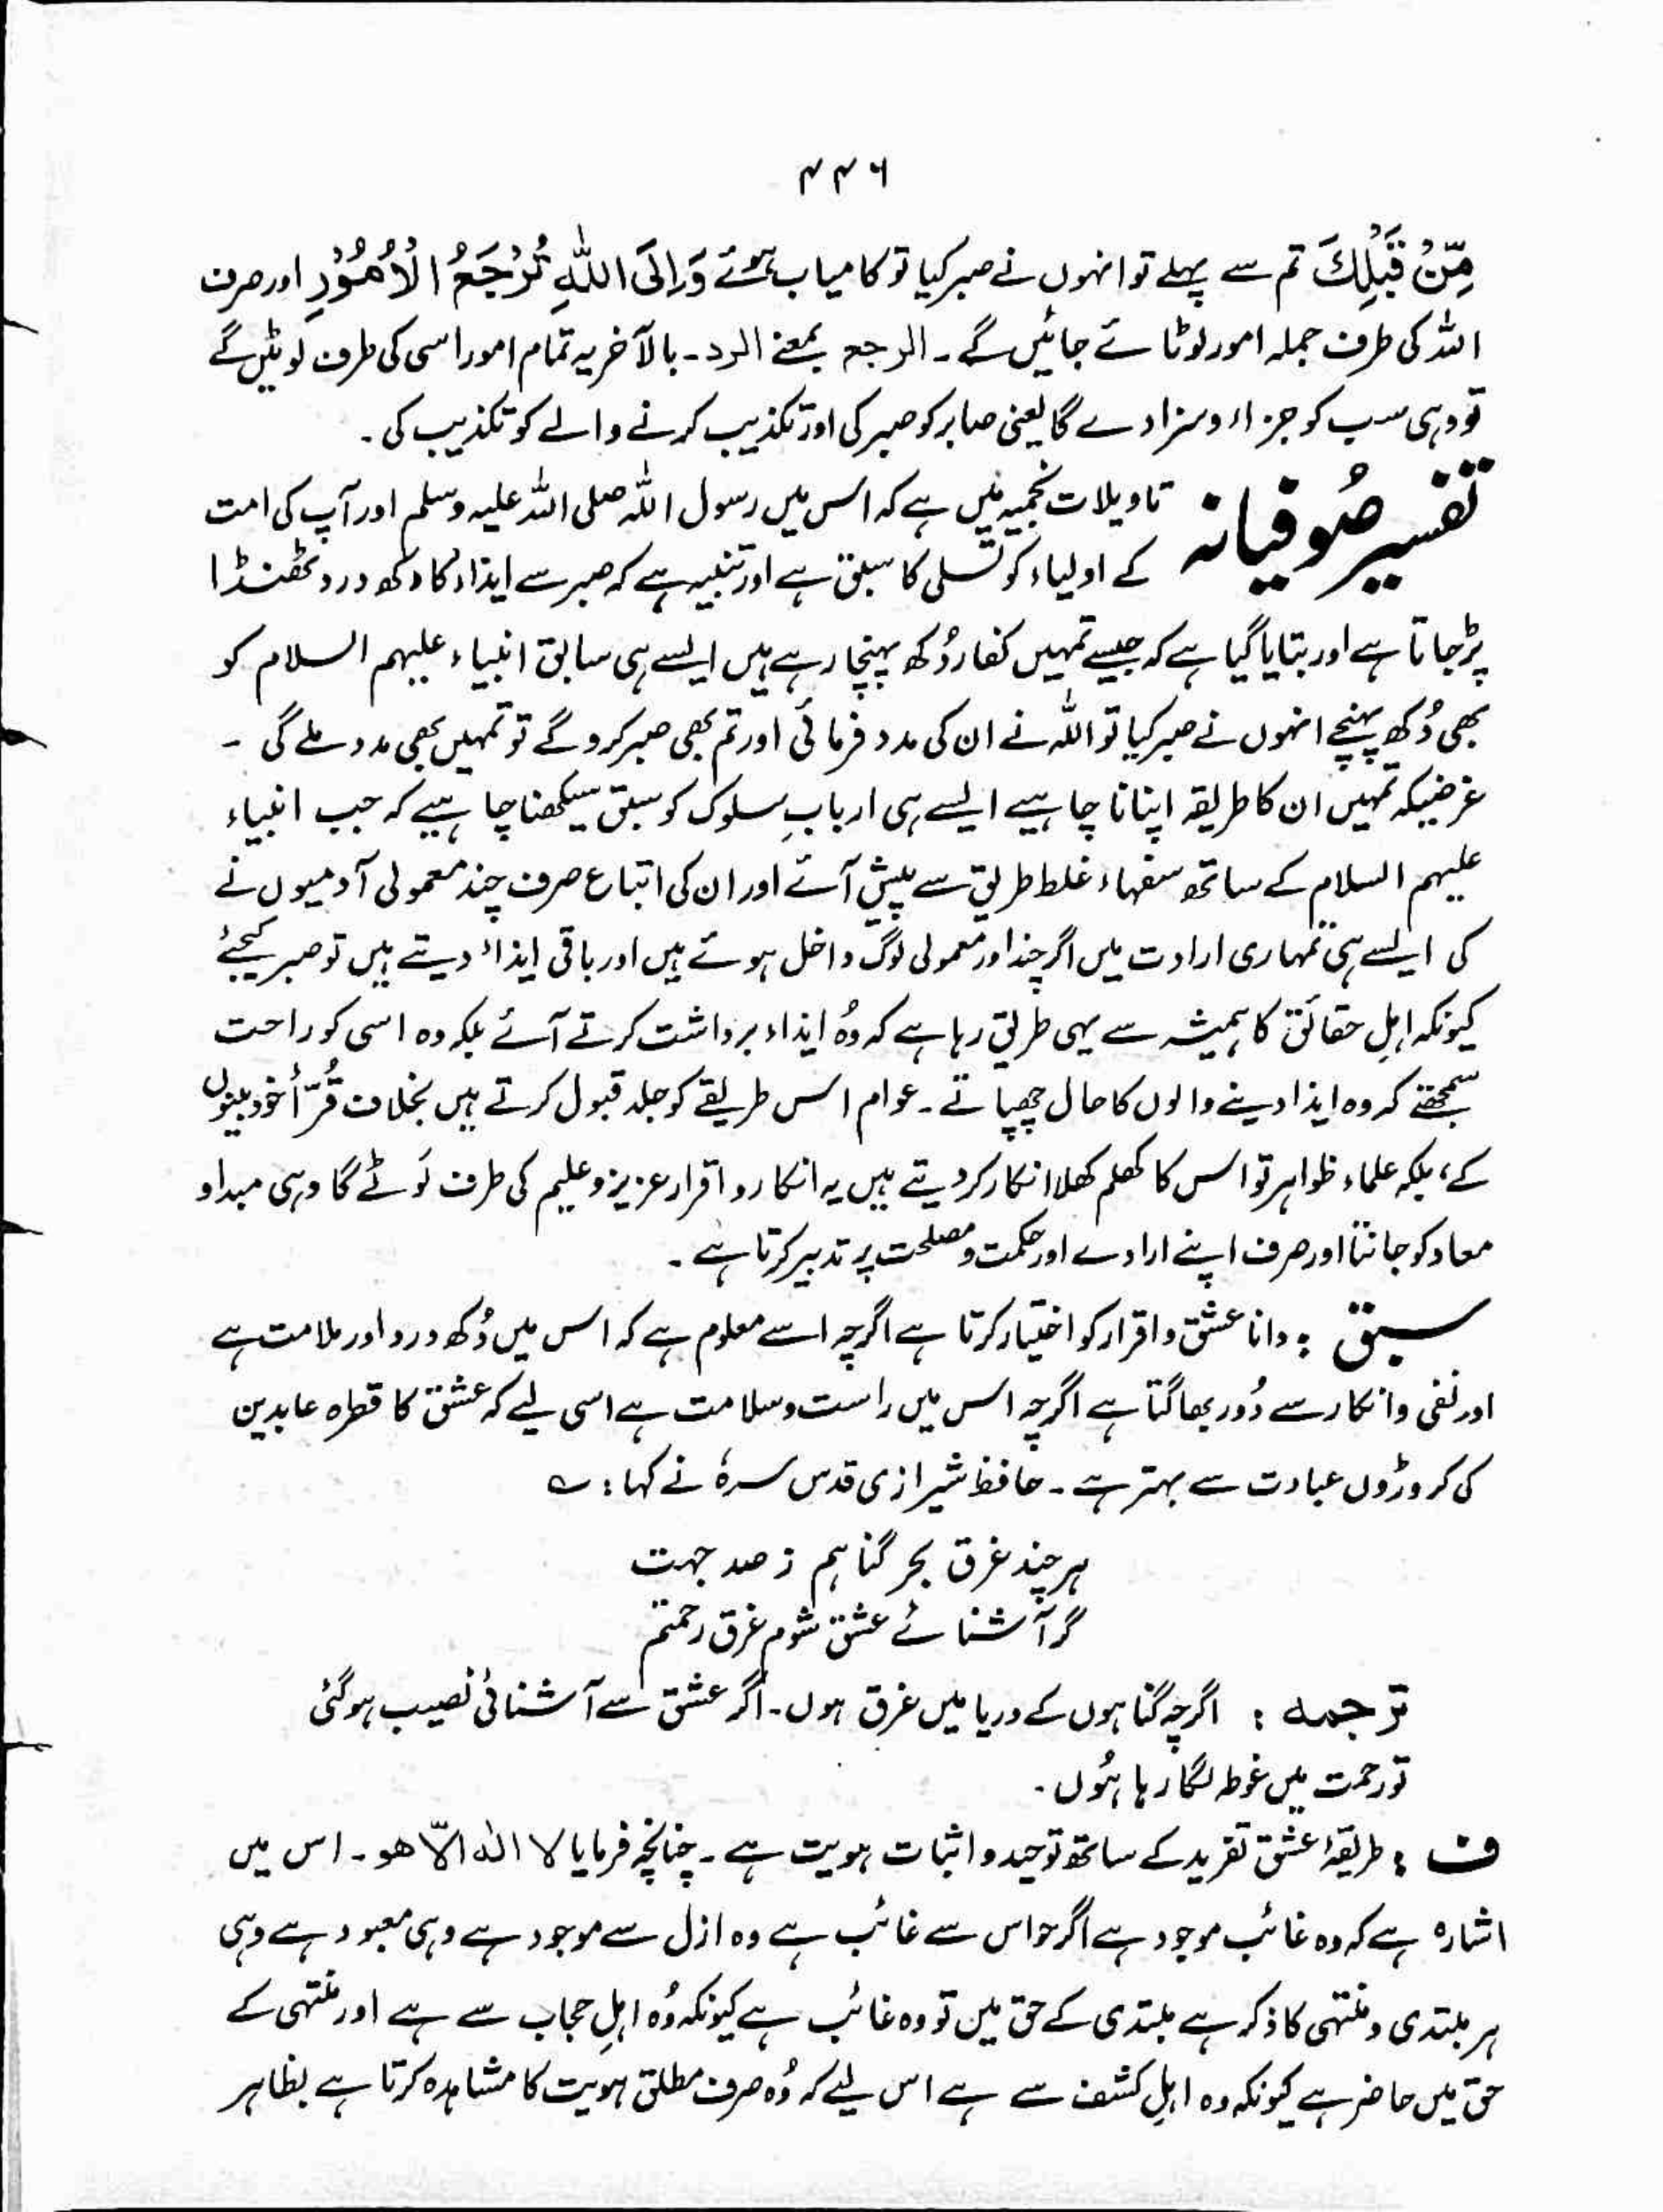 ۴۴۶
مِّنْ قَبْلِكَ تم سے پہلے تو انہوں نے صبر کیا تو کامیاب ہوئے وَاِلَی اللّٰہِ تُرْجَعُ الْاُمُوْرِ اور صرف
اللہ کی طرف جملہ امور لوٹائے جائیں گے۔ الرجع بمعنے الرد۔ بالآخر یہ تمام امور اسی کی طرف لوٹیں گے
تو وہی سب کو جزاء و سزا دے گا یعنی صابر کو صبر کی اور تکذیب کرنے والے کو تکذیب کی۔
تفسیر صُوفیانہ تاویلات نجمیہ میں ہے کہ اس میں رسول اللہ صلی اللہ علیہ وسلم اور آپ کی امت
کے اولیاء کو تسلی کا سبق ہے اور تنبیہ ہے کہ صبر سے ایذاء کا دکھ درد ٹھنڈا
پڑجاتا ہے اور بتایا گیا ہے کہ جیسے تمہیں کفار دُکھ پہنچا رہے ہیں ایسے ہی سابق انبیاء علیہم السلام کو
بھی دُکھ پہنچے انہوں نے صبر کیا تو اللہ نے ان کی مدد فرمائی اور تم بھی صبر کرو گے تو تمہیں بھی مدد ملے گی ۔
غرضیکہ تمہیں ان کا طریقہ اپنانا چاہیے ایسے ہی اربابِ سلوک کو سبق سیکھنا چاہیے کہ جب انبیاء
علیہم السلام کے ساتھ سفہاء غلط طریق سے پیش آئے اور ان کی اتباع صرف چند معمولی آدمیوں نے
کی ایسے ہی تمہاری ارادت میں اگر چند اور معمولی لوگ داخل ہوئے ہیں اور باقی ایذاء دیتے ہیں تو صبر کیجئے
کیونکہ اہلِ حقائق کا ہمیشہ سے یہی طریق رہا ہے کہ وُہ ایذاء برداشت کرتے آئے بلکہ وہ اسی کو راحت
سمجھتے کہ وہ ایذا دینے والوں کا حال چھپاتے۔ عوام اس طریقے کو جلد قبول کرتے ہیں بخلاف قُرّأ خود بینوں
کے، بلکہ علماء ظواہر تو اس کا کھلم کھلا انکار کر دیتے ہیں یہ انکار و اقرار عزیز و علیم کی طرف لَوٹے گا وہی مبداو
معاد کو جانتا اور صرف اپنے ارادے اور حکمت و مصلحت پر تدبیر کرتا ہے۔
سبق : دانا عشق و اقرار کو اختیار کرتا ہے اگرچہ اسے معلوم ہے کہ اس میں دُکھ درد اور ملامت ہے
اور نفی و انکار سے دُور بھاگتا ہے اگرچہ اس میں راست و سلامت ہے اسی لیے کہ عشق کا قطرہ عابدین
کی کروڑوں عبادت سے بہتر ہے۔ حافظ شیرازی قدس سرہٗ نے کہا : ؎
ہر چند غرق بحر گناہم ز صد جہت
گر آشنائے عشق شوم غرق رحمتم
ترجمہ : اگرچہ گناہوں کے دریا میں غرق ہوں۔ اگر عشق سے آشنائی نصیب ہوگئی
تو رحمت میں غوطہ لگا رہا ہُوں۔
ف : طریقۂ عشق تفرید کے ساتھ توحید و اثبات ہویت ہے۔ چنانچہ فرمایا لا الٰہ الّا ھو۔ اس میں
اشارہ ہے کہ وہ غائب موجود ہے اگر حواس سے غائب ہے وہ ازل سے موجود ہے وہی معبود ہے وہی
ہر مبتدی و منتہی کا ذکر ہے مبتدی کے حق میں تو وہ غائب ہے کیونکہ وُہ اہلِ حجاب سے ہے اور منتہی کے
حق میں حاضر ہے کیونکہ وہ اہلِ کشف سے ہے اس لیے کہ وُہ صرف مطلق ہویت کا مشاہدہ کرتا ہے بظاہر